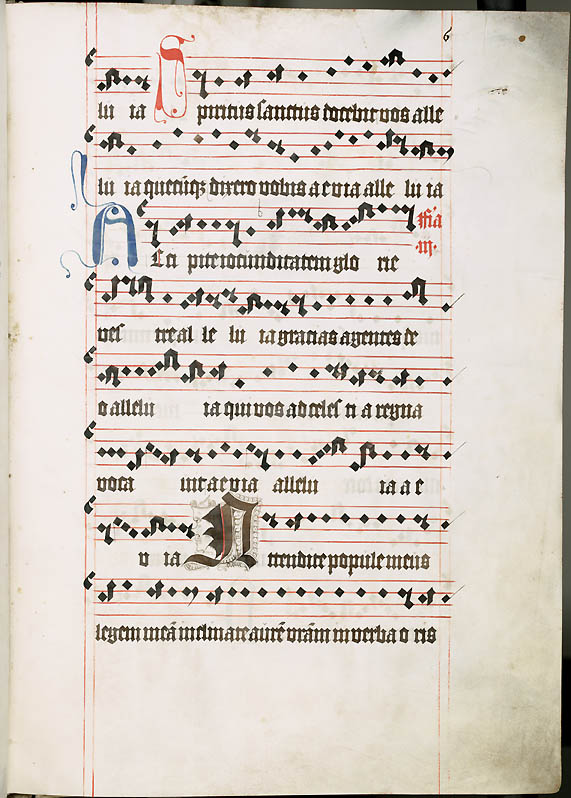 6
lu ia Spiritus sanctus docebit vos alle
lu ia quecūqȝ dixero vobis a e via alle lu ia
Acci pite iocunditatem glo rie
ves tre al le lu ia gracias agentes de
o allelu ia qui vos ad celes ti a regna
voca uit a e v i a allelu ia a e
v ia Attendite popule meus
legem meā inclinate aurē vrām in verba o ris